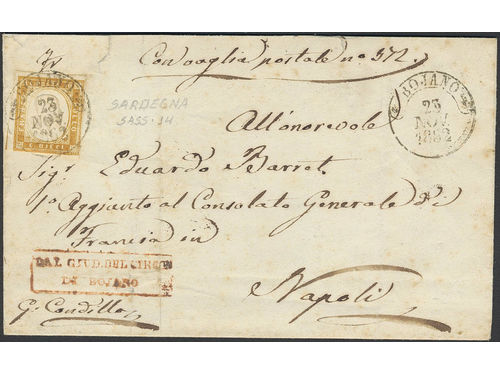 Con vaglia postale nº 372.
BOJANO
23
NOV.
1862
BOJANO
23
NOV.
1862
C. DIECI
SARDEGNA
SASS. 14
All'onorevole
Sigr Eduardo Barret
1º Aggiunto al Consolato Generale di
Francia in
Napoli
DAL GIUD. DEL CIRC
DI BOJANO